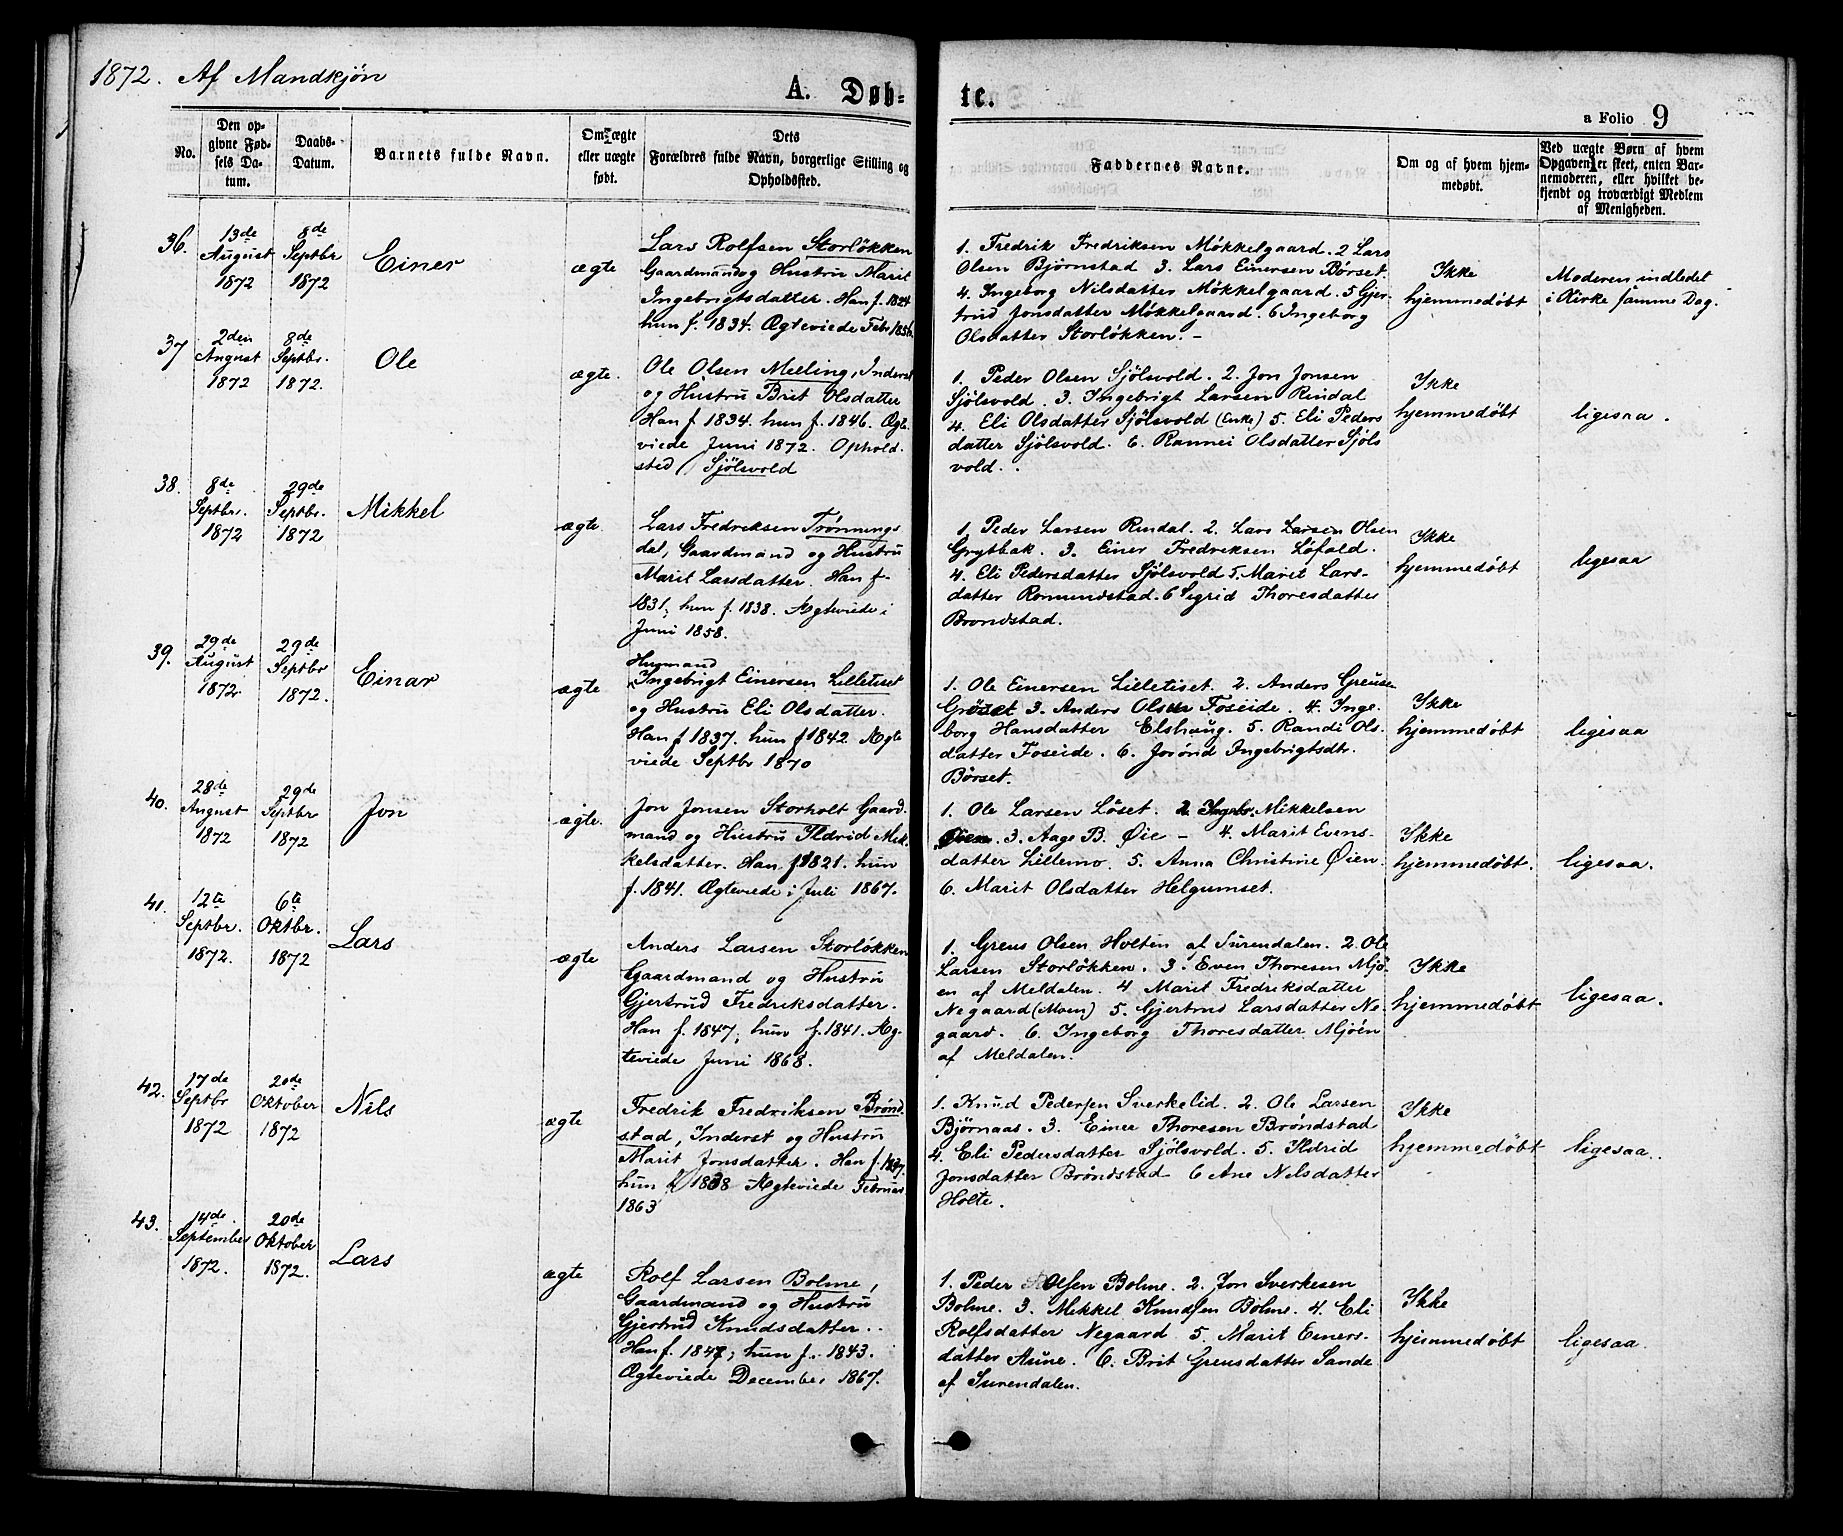 1872. Af Mandkjøn
A. Døb-
te.
a Folio 9
No.
Den op-
givne Fød-
sels Da-
tum.
Daabs-
Datum.
Barnets fulde Navn.
Om ægte
eller uægte
født.
Dets
Forældres fulde Navn, borgerlige Stilling og
Opholdssted.
Faddernes Navne.
Om og af hvem hjem-
medøbt.
Ved uægte Børn af hvem
Opgaven er skeet, enten Bar-
nemoderen, eller hvilket be-
kjendt og troværdigt Medlem
af Menigheden.
36.
13de
August
1872
8de
Septbr
1872
Einer
ægte
Lars Rolfsen Storløkken
Gaardmand og Hustru Marit
Ingebrigtsdatter. Han f. 1824
hun f. 1834. Ægteviede Febr 1856.
1. Fredrik Fredriksen Møkkelgaard. 2 Lars
Olsen Bjørnstad 3. Lars Einersen Børset.
4. Ingeborg Nilsdatter Møkkelgaard. 5 Gjer-
trud Jonsdatter Møkkelgaard. 6 Ingeborg
Olsdatter Storløkken. -
Ikke
hjemmedøbt
Moderen indledet
i Kirke samme Dag.
37
2den
August
1872
8de
Septbr.
1872.
Ole
ægte.
Ole Olsen Meeling, Inderst
og Hustru Brit Olsdatter
Han f 1834. hun f. 1846. Ægt-
viede Juni 1872. Ophold-
sted Sjölsvold
1. Peder Olsen Sjölsvold. 2. Jon Jonsen
Sjölsvold. 3. Ingebrigt Larsen Rindal
4. Eli Olsdatter Sjölsvold (Enke) 5. Eli Peders
datter Sjölsvold. 6. Rannei Olsdatter Sjöls
vold.
Ikke
hjemmedøbt
ligesaa.
38.
8de
Septbr.
1872
29de
Septbr.
1872
Mikkel
ægte.
Lars Fredriksen Trønnings
dal, Gaardmand og Hustru
Marit Larsdatter. Han f.
1831, hun f. 1838. Ægteviede i
Juni 1858.
1. Peder Larsen Rindal. 2. Lars Larsen Olsen
Grytbak. 3. Einer Fredriksen Løfald.
4. Eli Pedersdatter Sjölsvold 5. Marit Lars-
datter Romundstad. 6 Sigrid Thoresdatter
Brøndstad.
Ikke
hjemmedøbt
ligesaa
39.
29de
August
1872
29de
Septbr
1872.
Einar
ægte
Husmand
Ingebrigt Einersen Lilletiset
og Hustru Eli Olsdatter.
Han f 1837. hun f 1842. Ægte
viede Septbr 1870
1. Ole Einersen Lilletiset. 2. Anders Greuse
Grøset 3. Anders Olsen Foseide. 4. Inge-
borg Hansdatter Elshaug. 5. Randi Ols-
datter Foseide. 6. Jorønd Ingebrigtsdtr.
Børset.
Ikke
hjemmedøbt
ligesaa
40.
28de
August
1872
29de
Septbr
1872
Jon
ægte.
Jon Jonsen Storholt Gaard-
mand og Hustru Ildrid Mik-
kelsdatter. Han f 1821. hun
f. 1841. Ægteviede i Juli 1867.
1. Ole Larsen Løset. 2 Ingebr. Mikkelsen
Øien. 3. Aage B. Øie - 4. Marit Evens-
datter Lillemo. 5. Anna Christine Øien.
6. Marit Olsdatter Helgumset.
Ikke
hjemmedøbt.
ligesaa.
41.
12te
Septbr.
1872.
6te
Oktbr.
1872
Lars
ægte
Anders Larsen Storløkken
Gaardmand og Hustru
Gjertrud Fredriksdatter.
Han f. 1847; hun f. 1841. Æg-
teviede Juni 1868.
1. Greus Olsen Holten af Surendalen. 2. Ole
Larsen Storløkken. 3. Even Thoresen Mjö-
en af Meldalen. 4. Marit Fredriksdatter
Negaard (Moen) 5. Gjertrud Larsdatter Ne-
gaard. 6. Ingeborg Thoresdatter Mjöen
af Meldalen.
Ikke
hjemmedøbt
ligesaa.
42.
17de
Septbr
1872
20de
Oktober
1872
Nils
ægte
Fredrik Fredriksen Brønd-
stad, Inderst og Hustru
Marit Jonsdatter. Han f. 1837.
hun f 1838 Ægteviede Februar
1863
1. Knud Pedersen Sverkelid. 2. Ole Larsen
Bjørnaas. 3. Einer Thoresen Brøndstad
4. Eli Pedersdatter Sjölsvold. 5. Ildrid
Jonsdatter Brøndstad 6 Ane Nilsdatter
Holte.
Ikke
hjemmedøbt
ligesaa.
43.
14de
September
1872.
20de
Oktober
1872.
Lars
ægte
Rolf Larsen Bolme,
Gaardmand og Hustru
Gjertrud Knudsdatter.
Han f. 1847; hun f. 1843.
Ægteviede December 1867.
1. Peder Olsen Bolme. 2. Jon Sverkesen
Bolme. 3. Mikkel Knudsen Bolme. 4. Eli
Rolfsdatter Negaard 5. Marit Einers-
datter Aune. 6. Brit Greusdatter Sande
af Surendalen.
Ikke
hjemmedøbt
ligesaa.